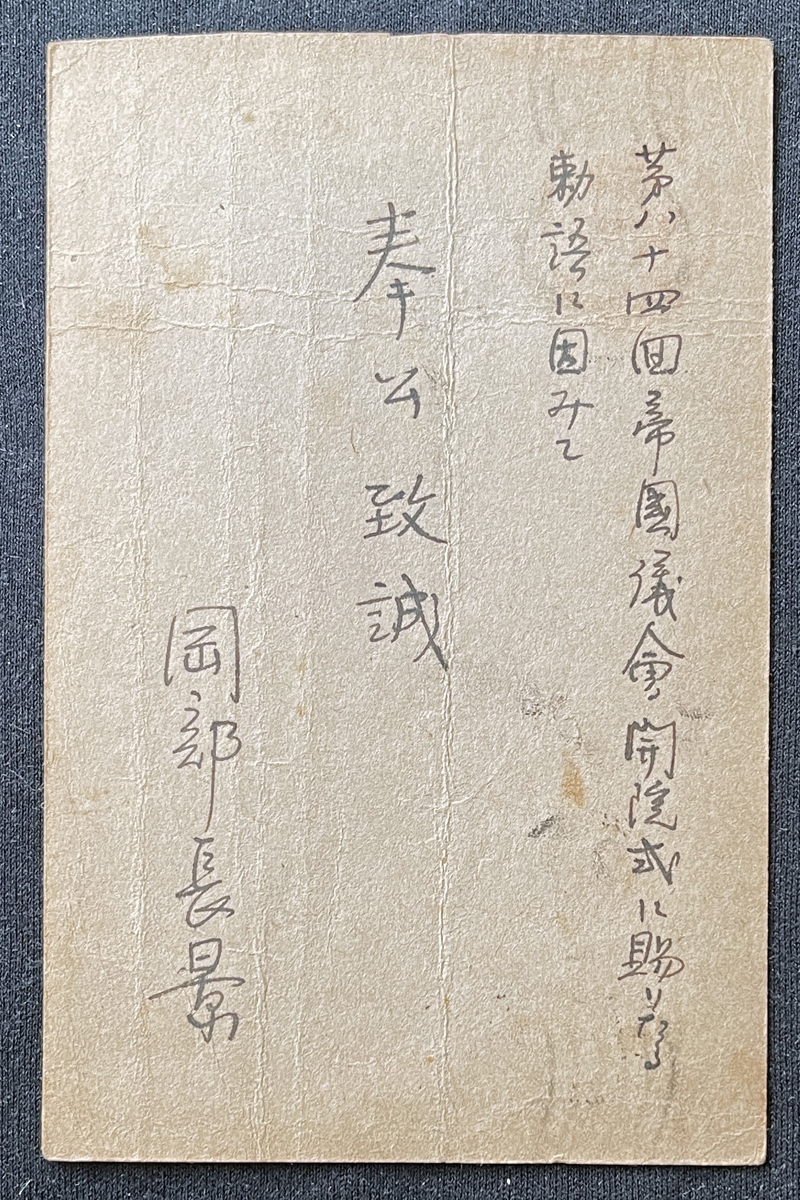 第八十四回帝國議會開院式に賜りたる
勅語に因みて
奉公致誠
岡部長景